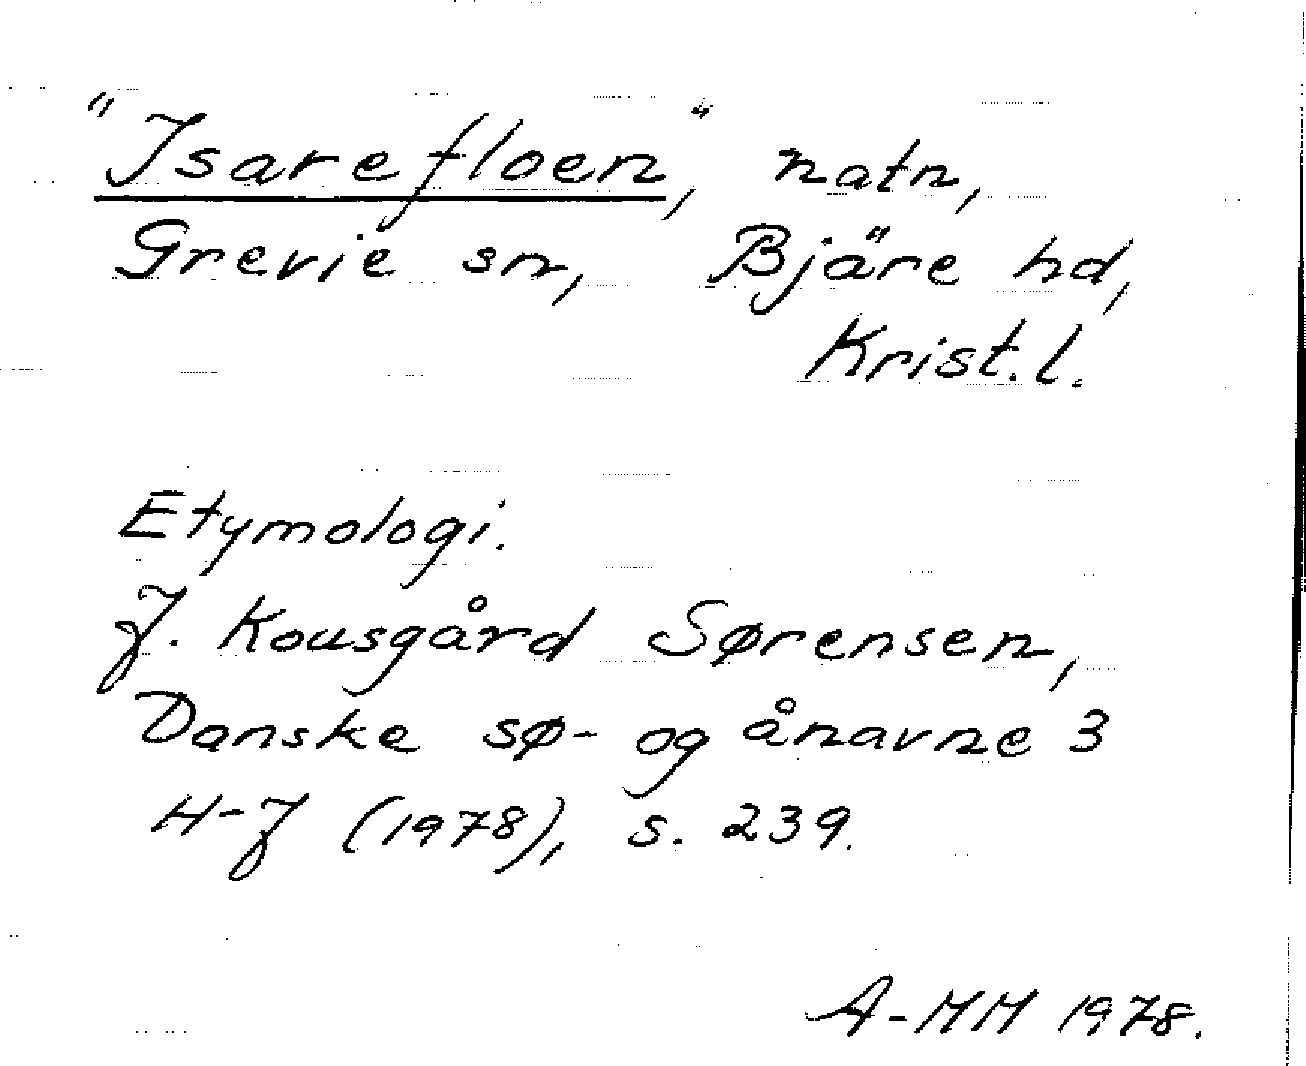 "Isarefloen", natn,
Grevie sn, Bjäre hd,
Krist. l.
Etymologi.
J. Kousgård Sørensen,
Danske sø- og ånavne 3
H-J (1978), s. 239.
A-MM 1978.